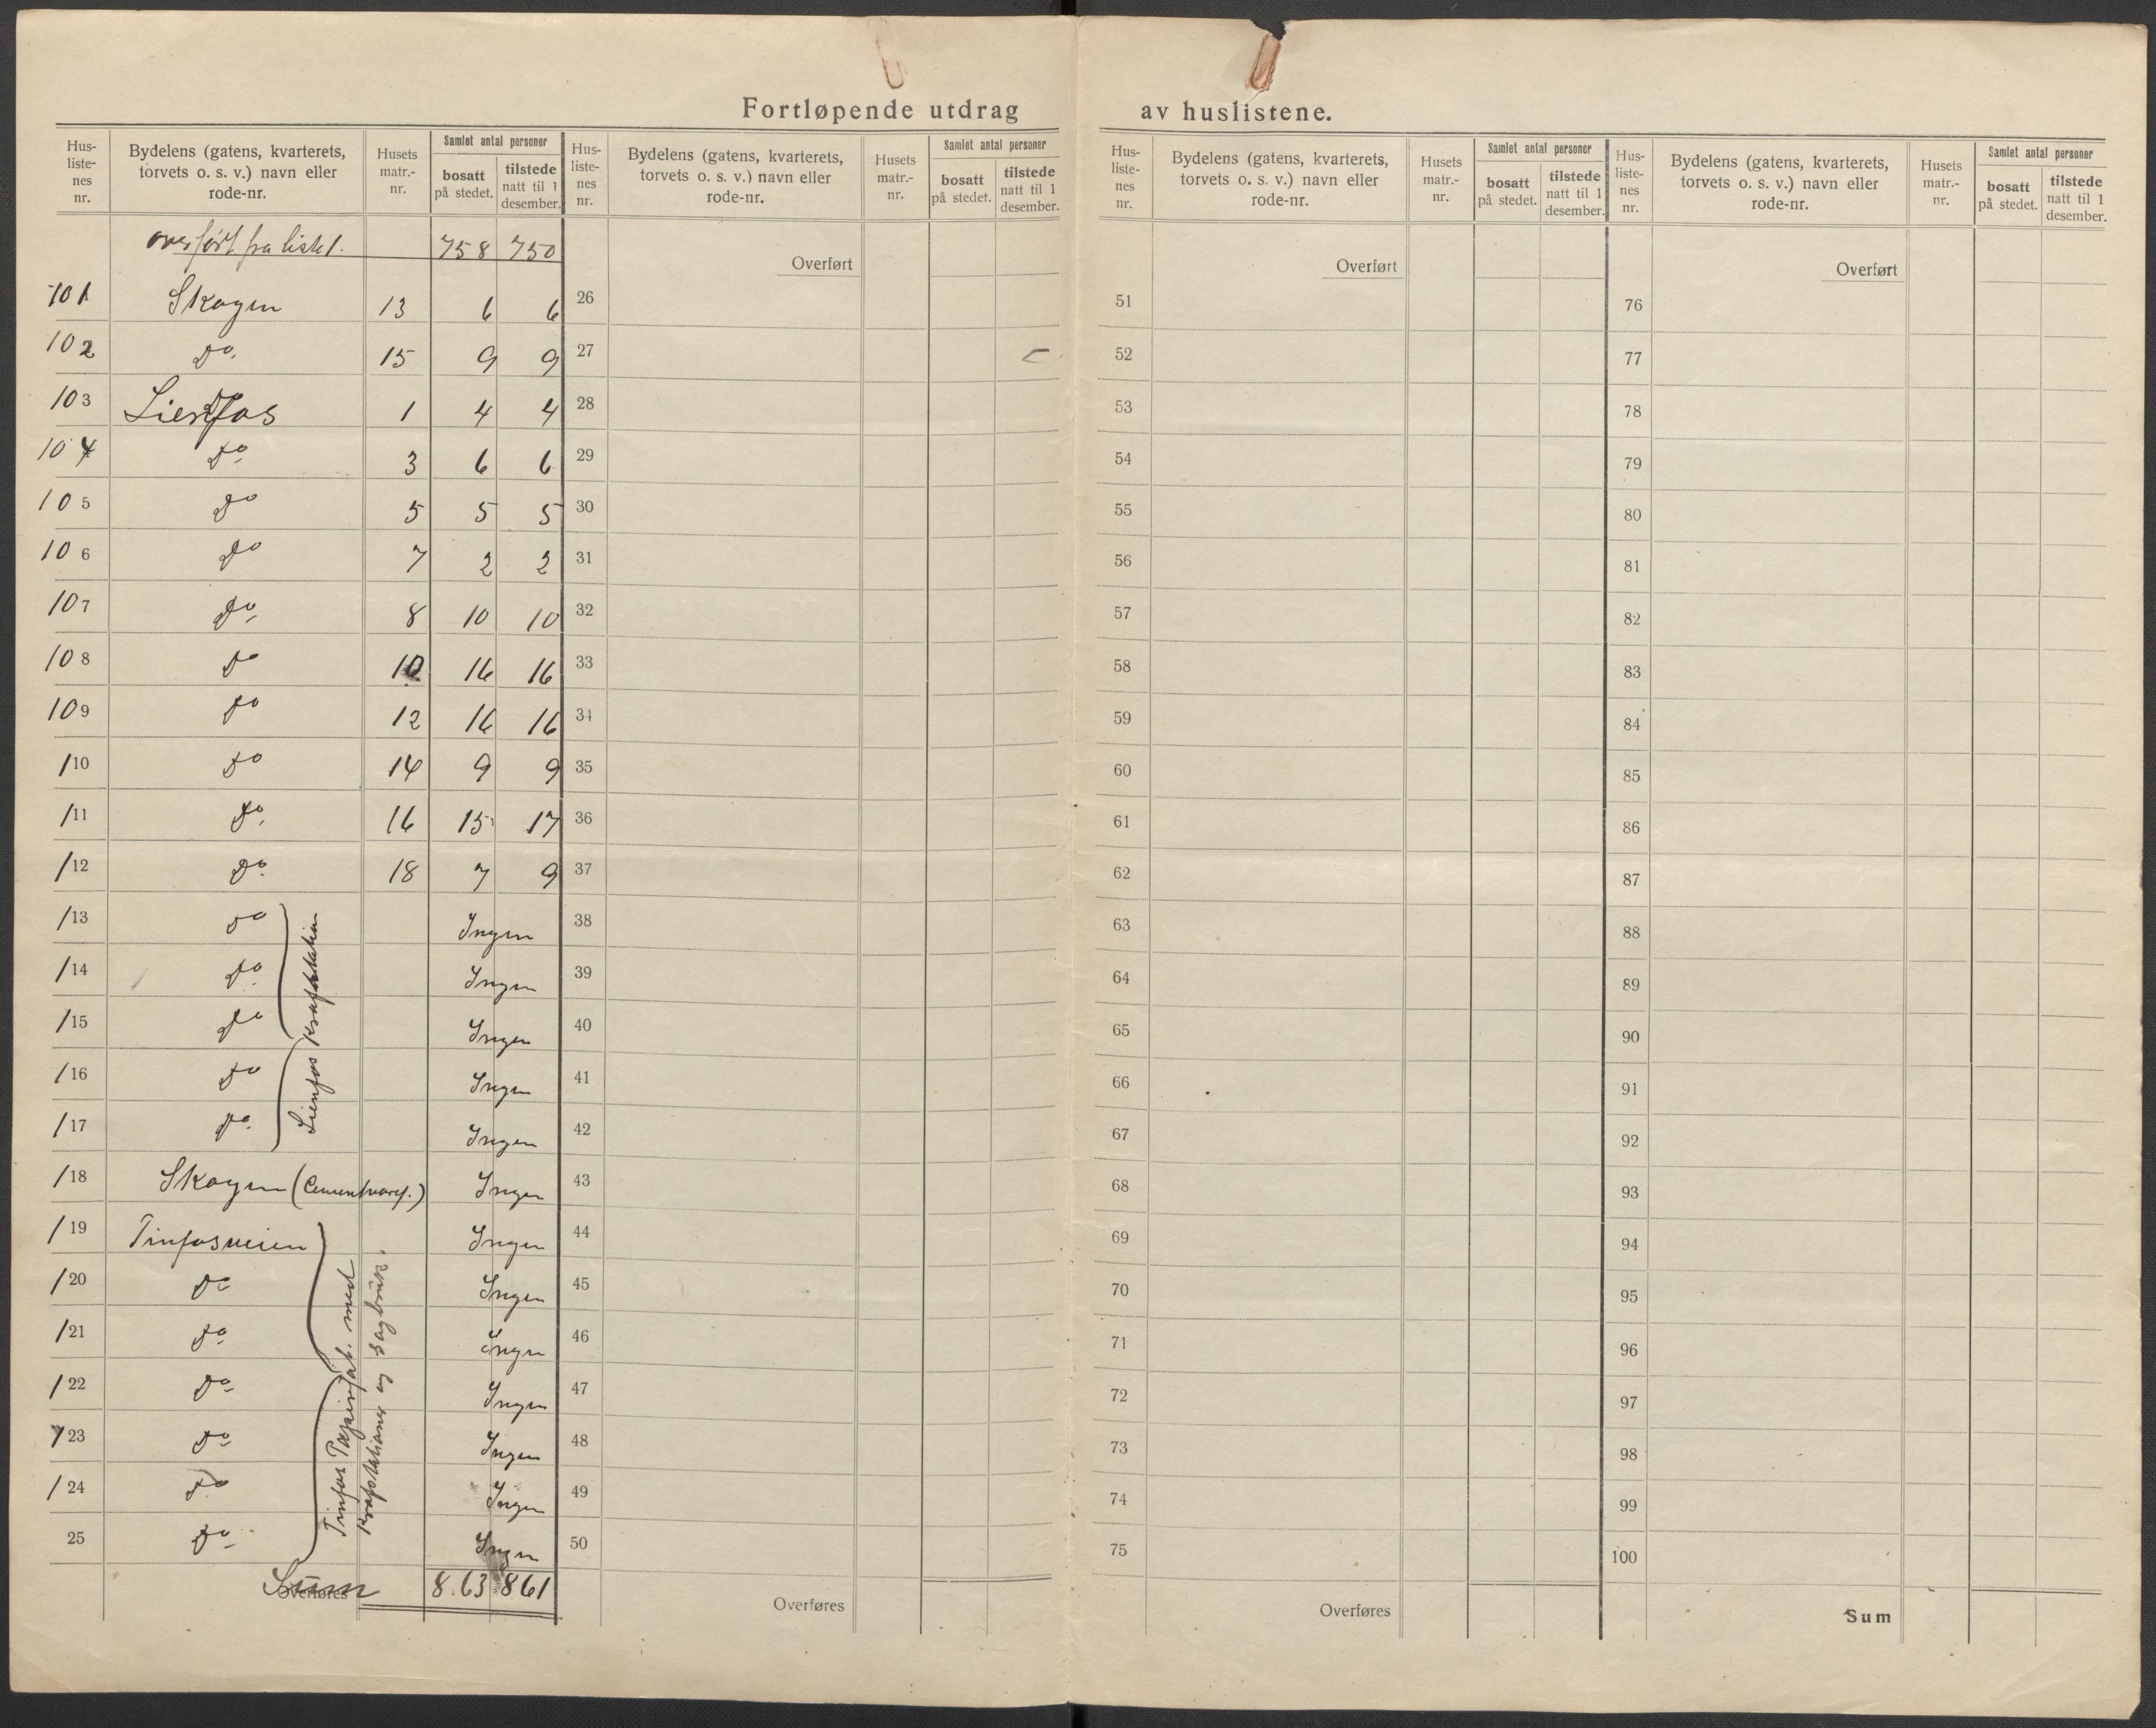 Fortløpende utdrag av huslistene.
Hus-listenes nr. Bydelens (gatens, kvarterets, torvets o. s. v.) navn eller rode-nr. Husets matr.-nr. Samlet antal personer bosatt på stedet. tilstede natt til 1 desember.
overført fra liste 1. 758 750
101 Skogen 13 6 6
102 Do. 15 9 9
103 Lienfos 1 4 4
104 Do. 3 6 6
105 Do 5 5 5
106 Do 7 2 2
107 Do. 8 10 10
108 Do 10 16 16
109 Do 12 16 16
110 Do 14 9 9
111 Do. 16 15 17
112 Do. 18 7 9
113 Do Ingen
114 Do. Ingen
115 Do Ingen
116 Do Ingen
117 Do. Ingen
Lienfos Kraftstation
118 Skogen (Cementvaref.) Ingen
119 Tinfosveien Ingen
120 Do Ingen
121 Do. Ingen
122 Do. Ingen
123 Do. Ingen
124 Do Ingen
25 Do. Ingen
Tinfos Papirfab. med
Kraftstationer og Sagbruk.
Overføres Sum 8.63 861
Hus-listenes nr. Bydelens (gatens, kvarterets, torvets o. s. v.) navn eller rode-nr. Husets matr.-nr. Samlet antal personer bosatt på stedet. tilstede natt til 1 desember.
Overført
26
27
28
29
30
31
32
33
34
35
36
37
38
39
40
41
42
43
44
45
46
47
48
49
50
Overføres
Hus-listenes nr. Bydelens (gatens, kvarterets, torvets o. s. v.) navn eller rode-nr. Husets matr.-nr. Samlet antal personer bosatt på stedet. tilstede natt til 1 desember.
Overført
51
52
53
54
55
56
57
58
59
60
61
62
63
64
65
66
67
68
69
70
71
72
73
74
75
Overføres
Hus-listenes nr. Bydelens (gatens, kvarterets, torvets o. s. v.) navn eller rode-nr. Husets matr.-nr. Samlet antal personer bosatt på stedet. tilstede natt til 1 desember.
Overført
76
77
78
79
80
81
82
83
84
85
86
87
88
89
90
91
92
93
94
95
96
97
98
99
100
Sum